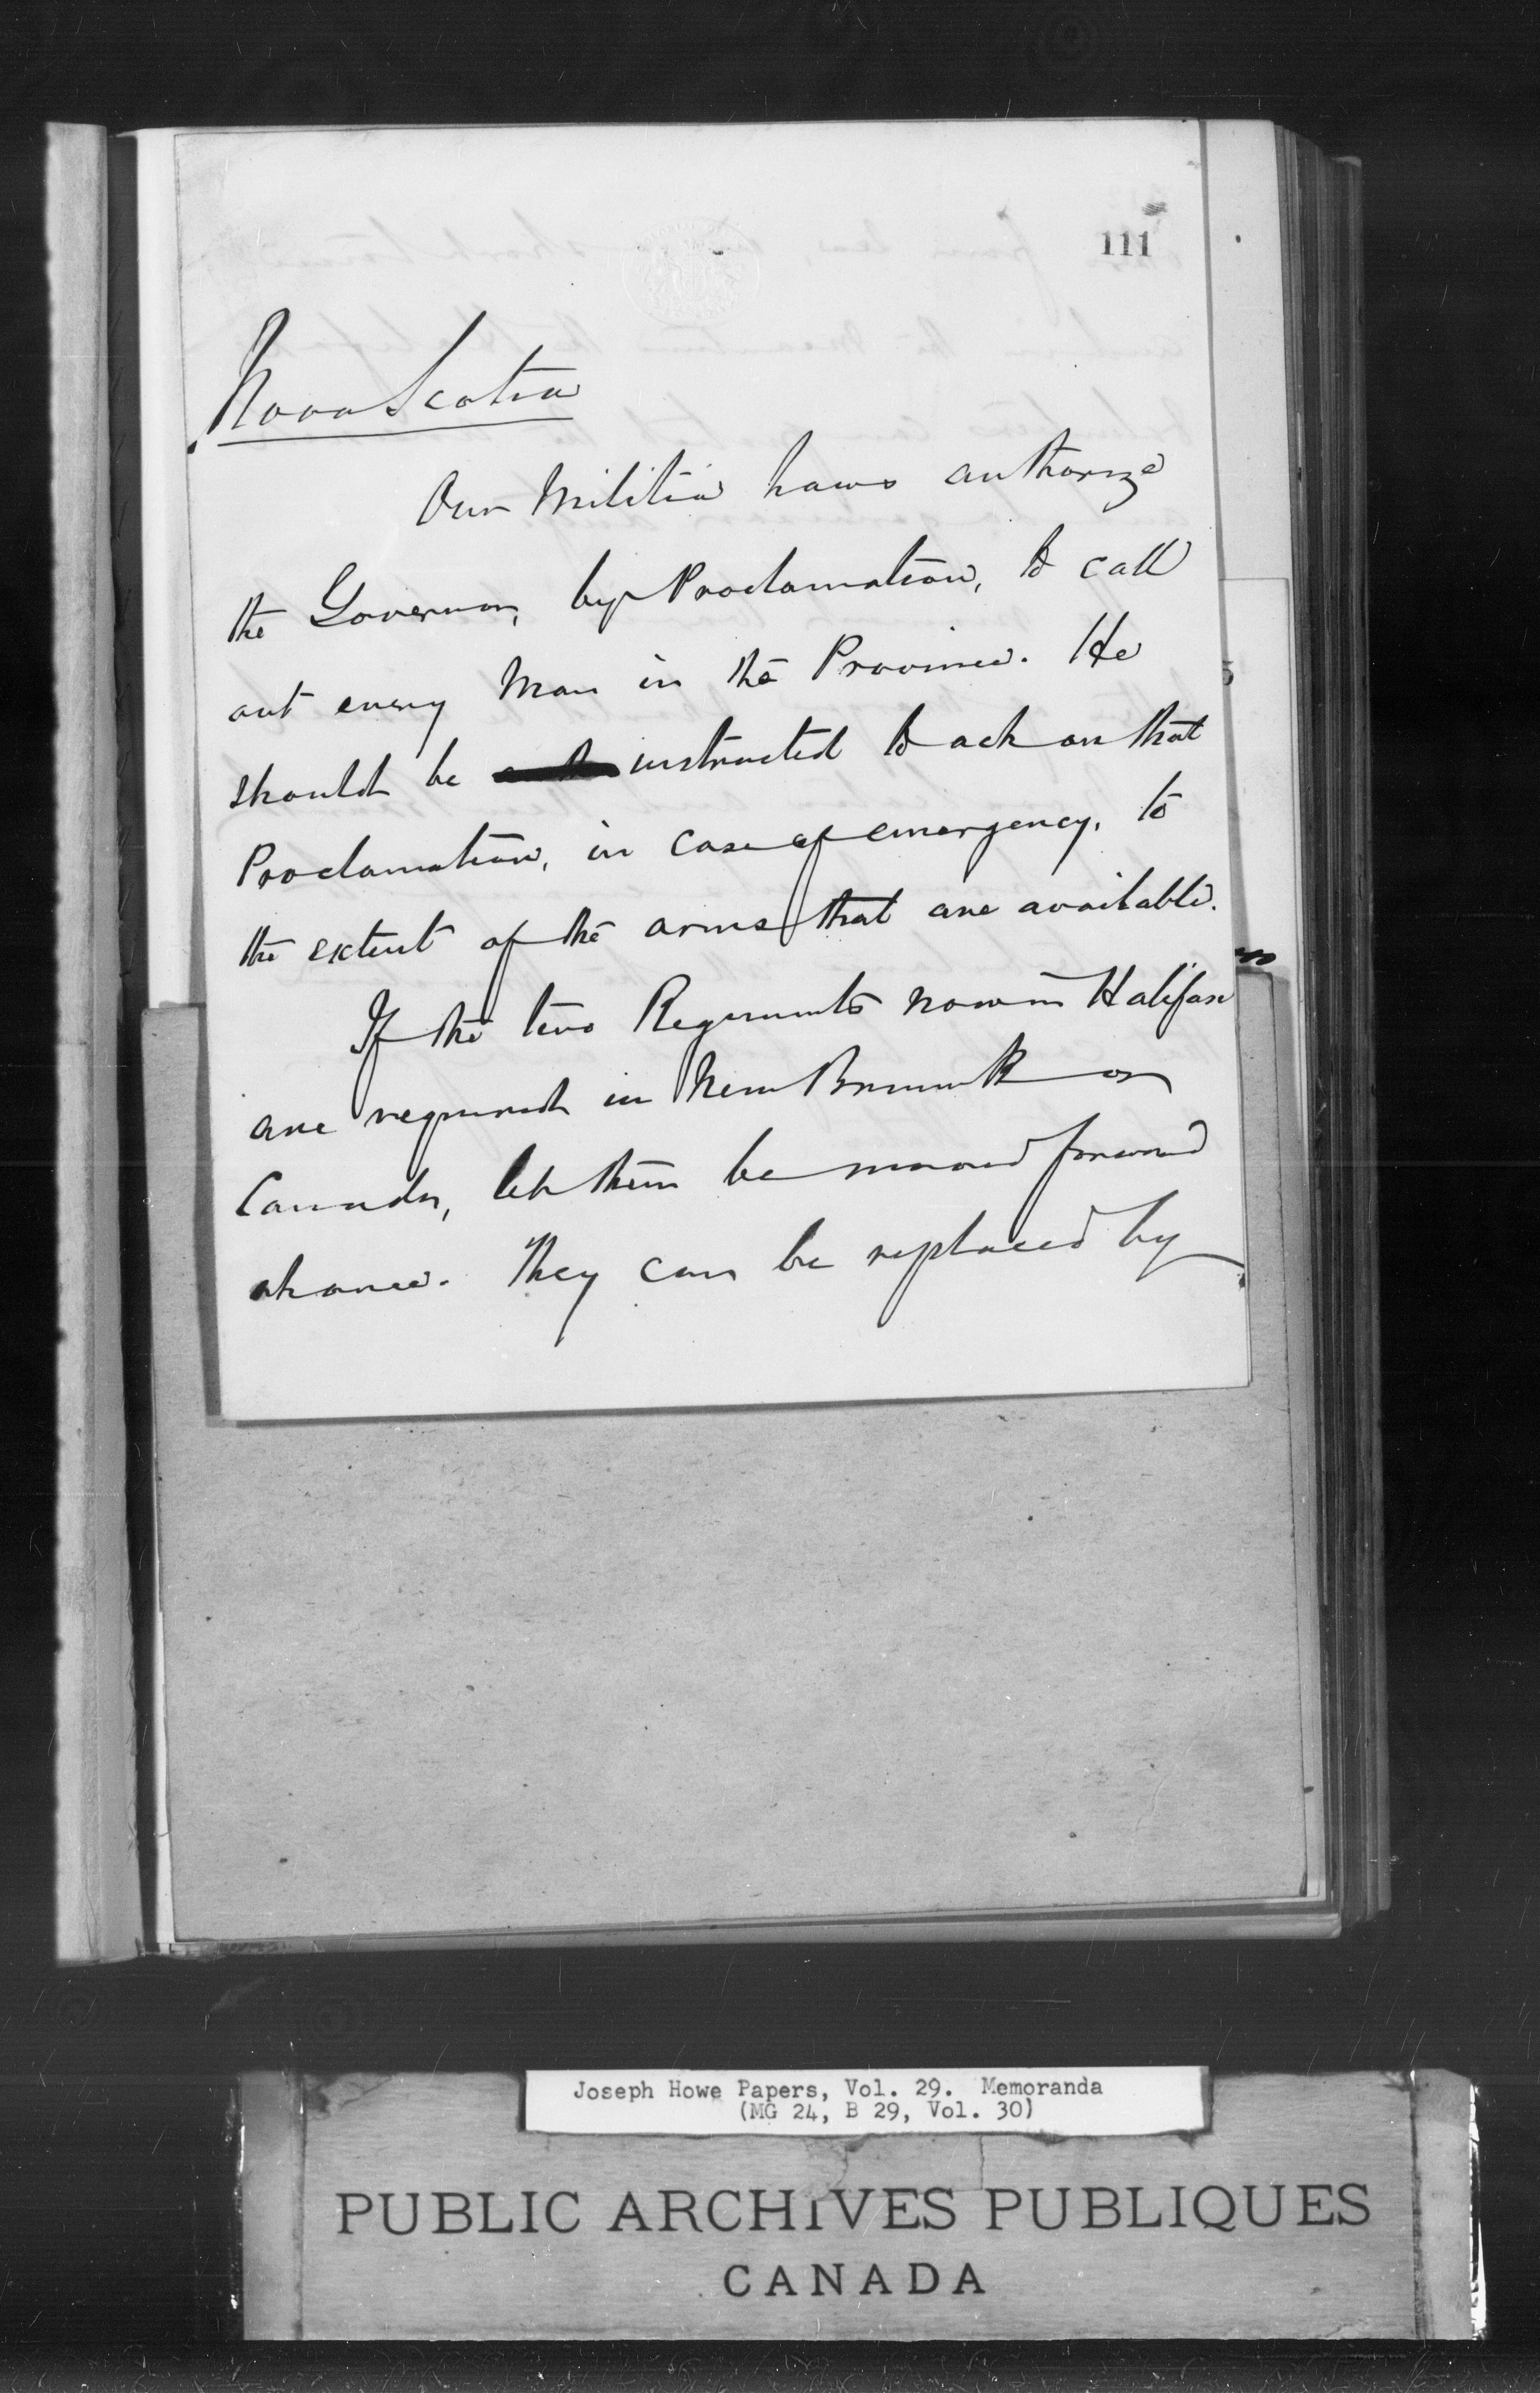 111
Nova Scotia
Our Militia Laws authorize
the Governor, by Proclamation, to call
out every Man in the Province. He
should be instructed to act on that
Proclamation, in case of emergency, to
the extent of the arms that are available.
If the two Regiments now in Halifax
are required in New Brunswick or
Canada, let them be moved forward
at once. They can be replaced by
Joseph Howe Papers, Vol. 29. Memoranda
(MG 24, B 29, Vol. 30)
PUBLIC ARCHIVES PUBLIQUES
CANADA